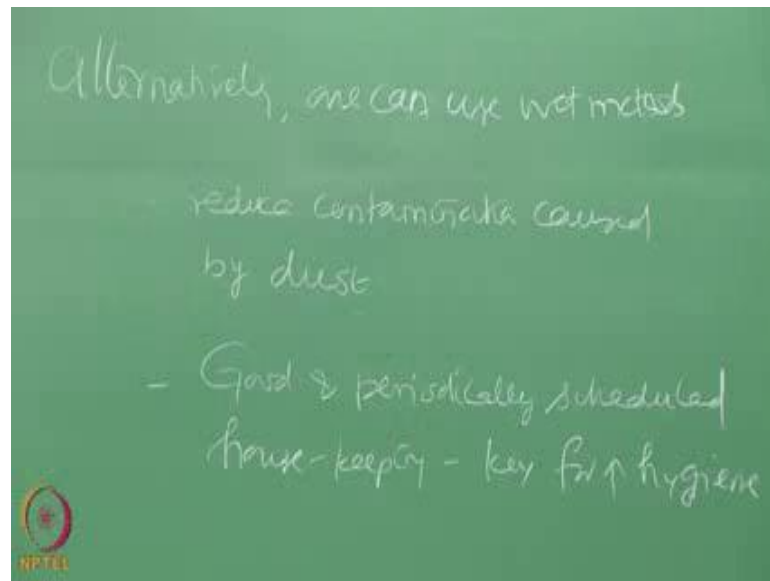 Alternatively, one can use wet methods
reduce contamination caused
by dust
- Good & periodically scheduled
house-keeping - key for ↑ hygiene
NPTEL